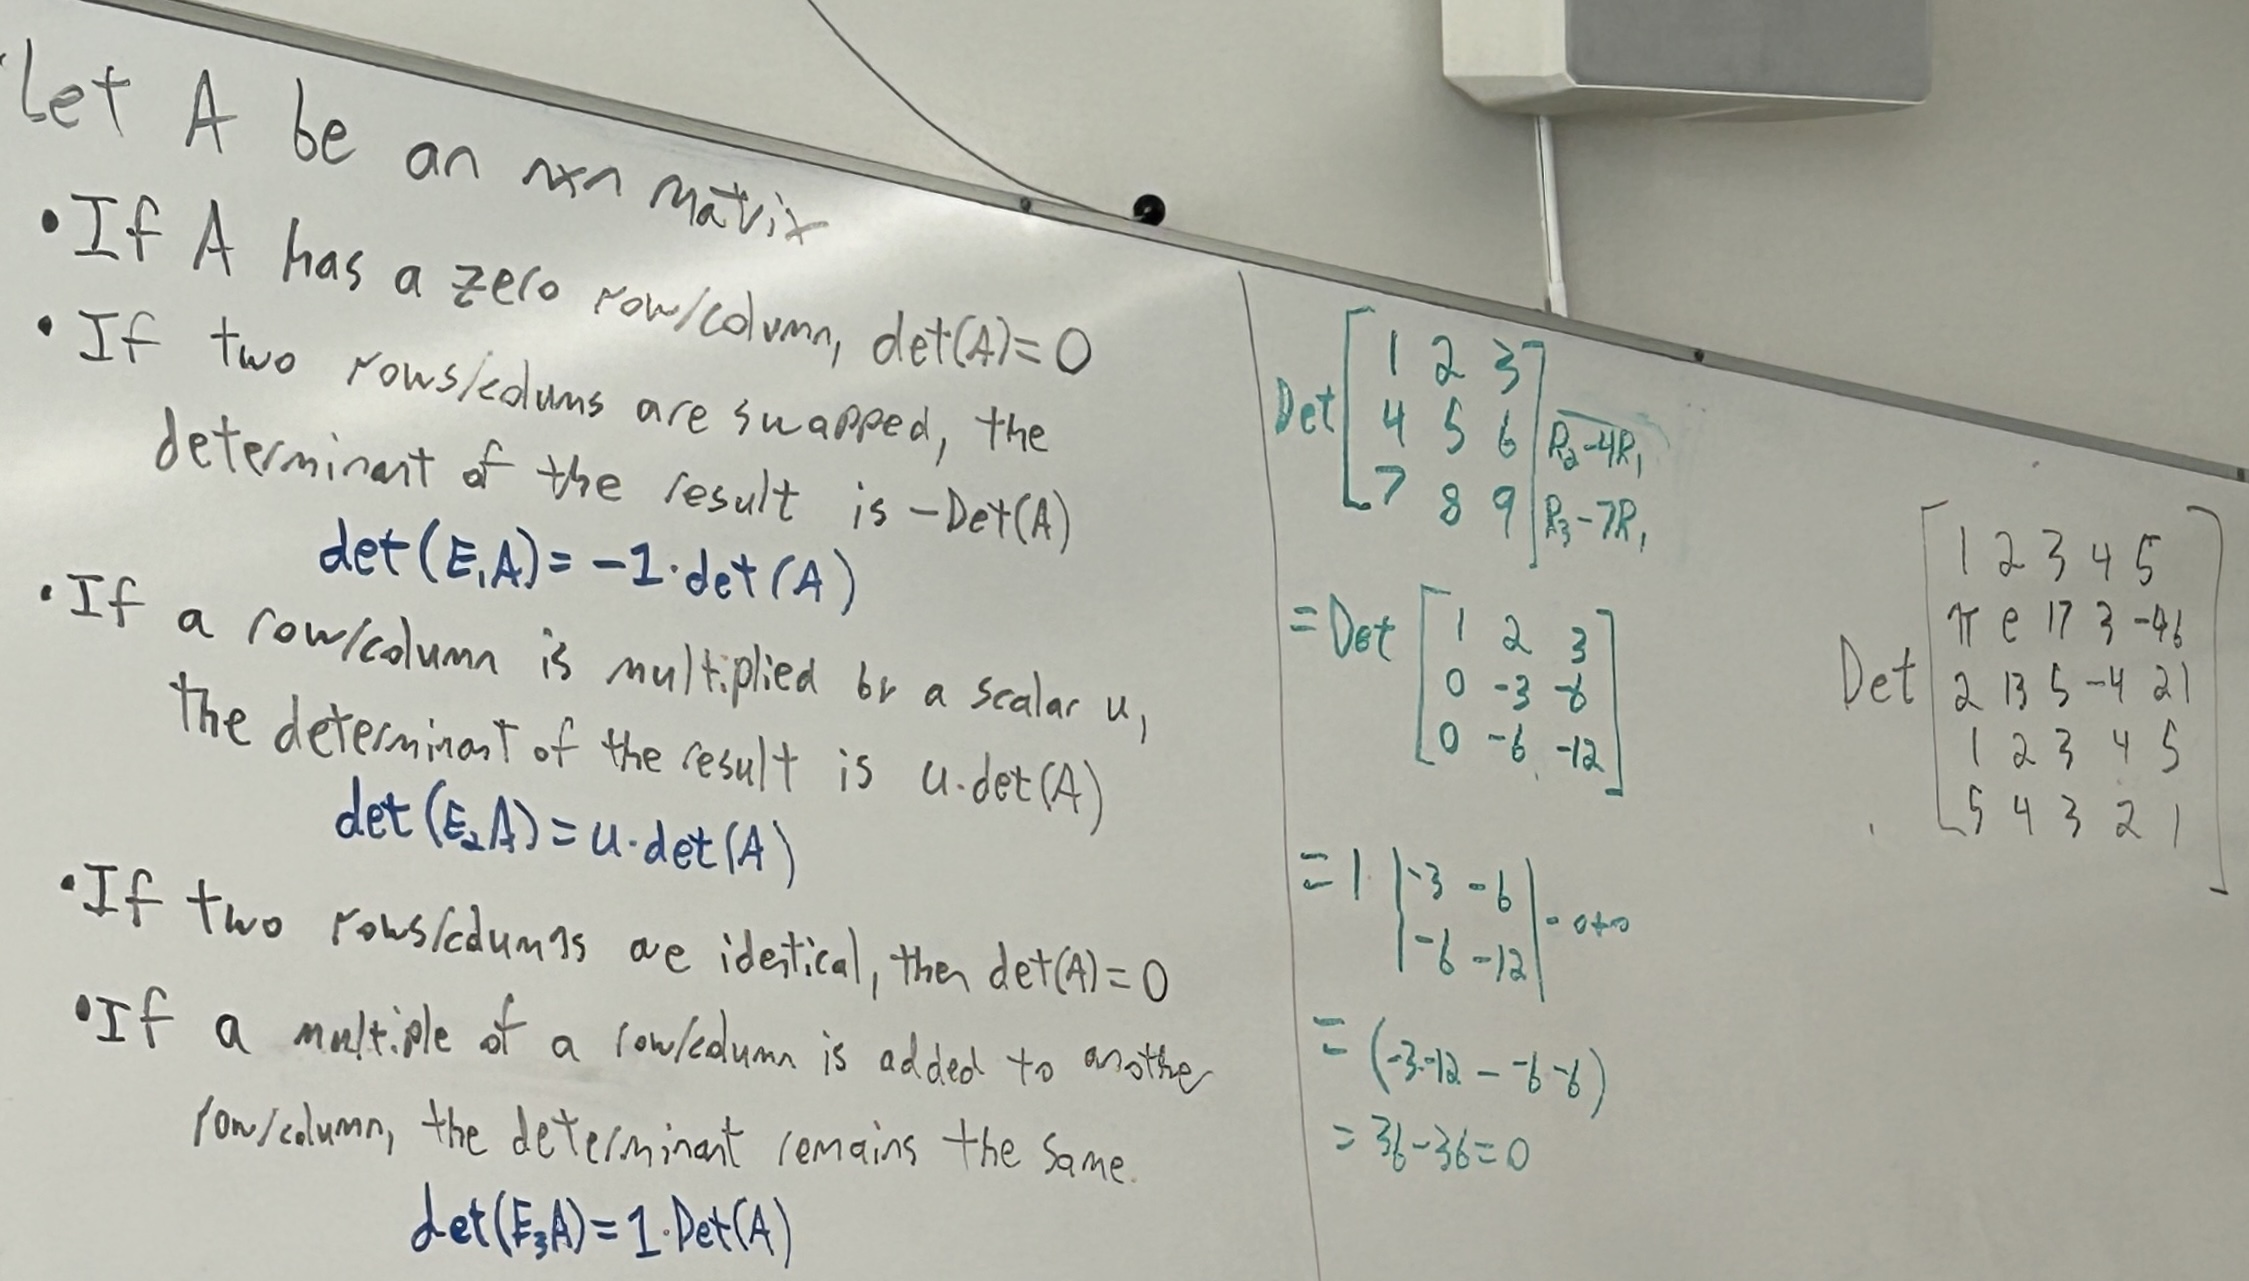 Let A be an nxn matrix
• If A has a zero row/column, det(A)=0
• If two rows/colums are swapped, the
determinant of the result is -Det(A)
det(E₁A)= -1·det(A)
• If a row/column is multiplied by a scalar u,
the determinant of the result is u·det(A)
det(E₂A)= u·det(A)
• If two rows/columns are identical, then det(A)=0
• If a multiple of a row/column is added to another
row/column, the determinant remains the same.
det(E₃A)= 1·Det(A)
Det [ 1 2 3
4 5 6 R₂-4R₁
7 8 9 ] R₃-7R₁
= Det [ 1 2 3
0 -3 -6
0 -6 -12 ]
= 1 | -3 -6
-6 -12 | - 0+0
= (-3·-12 - -6·-6)
= 36-36=0
Det [ 1 2 3 4 5
π e 17 3 -46
2 13 5 -4 21
1 2 3 4 5
5 4 3 2 1 ]